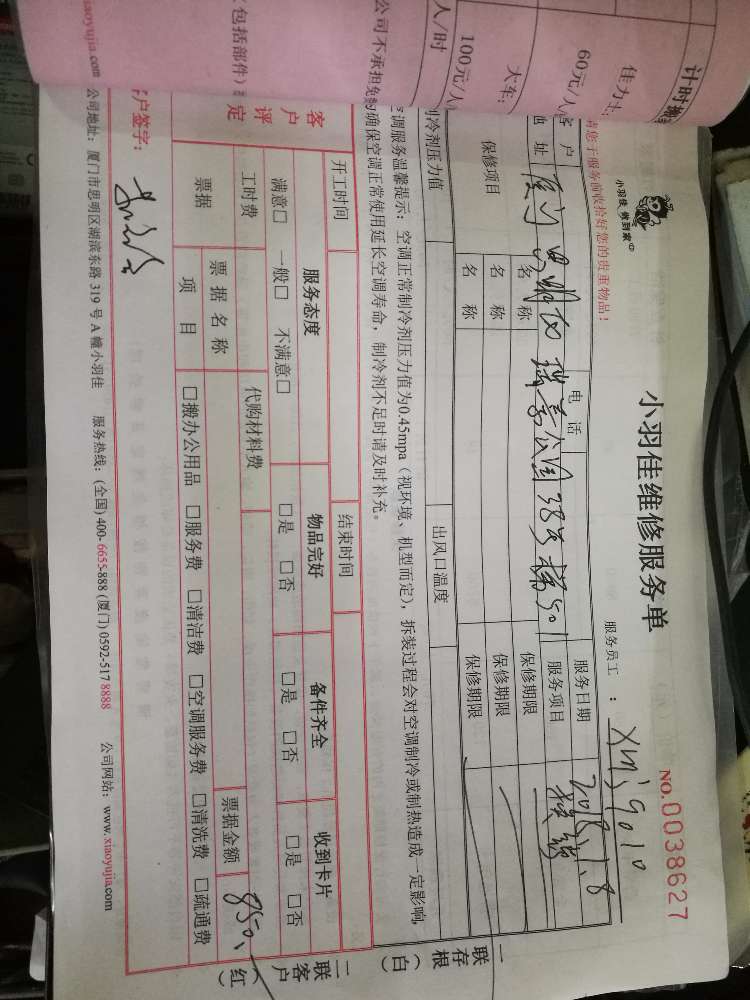 计时搬
佳力士
60元/人
大车:
100元/人
人/时
公司不承担免
包括部件)
小羽佳 做到家
小羽佳维修服务单
NO.0038627
服务员工:
请您于服务前收拾好您的贵重物品!
客户
地址
电话
服务日期
2018.1.8
瑞景公园38号楼501
服务项目
保修项目
名称
保修期限
名称
保修期限
名称
保修期限
制冷剂压力值
出风口温度
空调服务温馨提示: 空调正常制冷剂压力值为0.45mpa(视环境、机型而定), 拆装过程会对空调制冷或制热造成一定影响,
确保空调正常使用延长空调寿命, 制冷剂不足时请及时补充。
开工时间
结束时间
客户评定
服务态度
物品完好
备件齐全
收到卡片
满意□ 一般□ 不满意□
□是 □否
□是 □否
□是 □否
工时费
代购材料费
票据
票据名称
票据金额
850
项目
□搬办公用品 □服务费 □清洁费 □空调服务费 □清洗费 □疏通费
客户签字:
xiaoyujia.com 公司地址: 厦门市思明区湖滨东路 319 号 A 幢小羽佳 服务热线: (全国) 400-6655-888 (厦门) 0592-517 8888 公司网站: www.xiaoyujia.com
一存根(白)
二联客户(红)